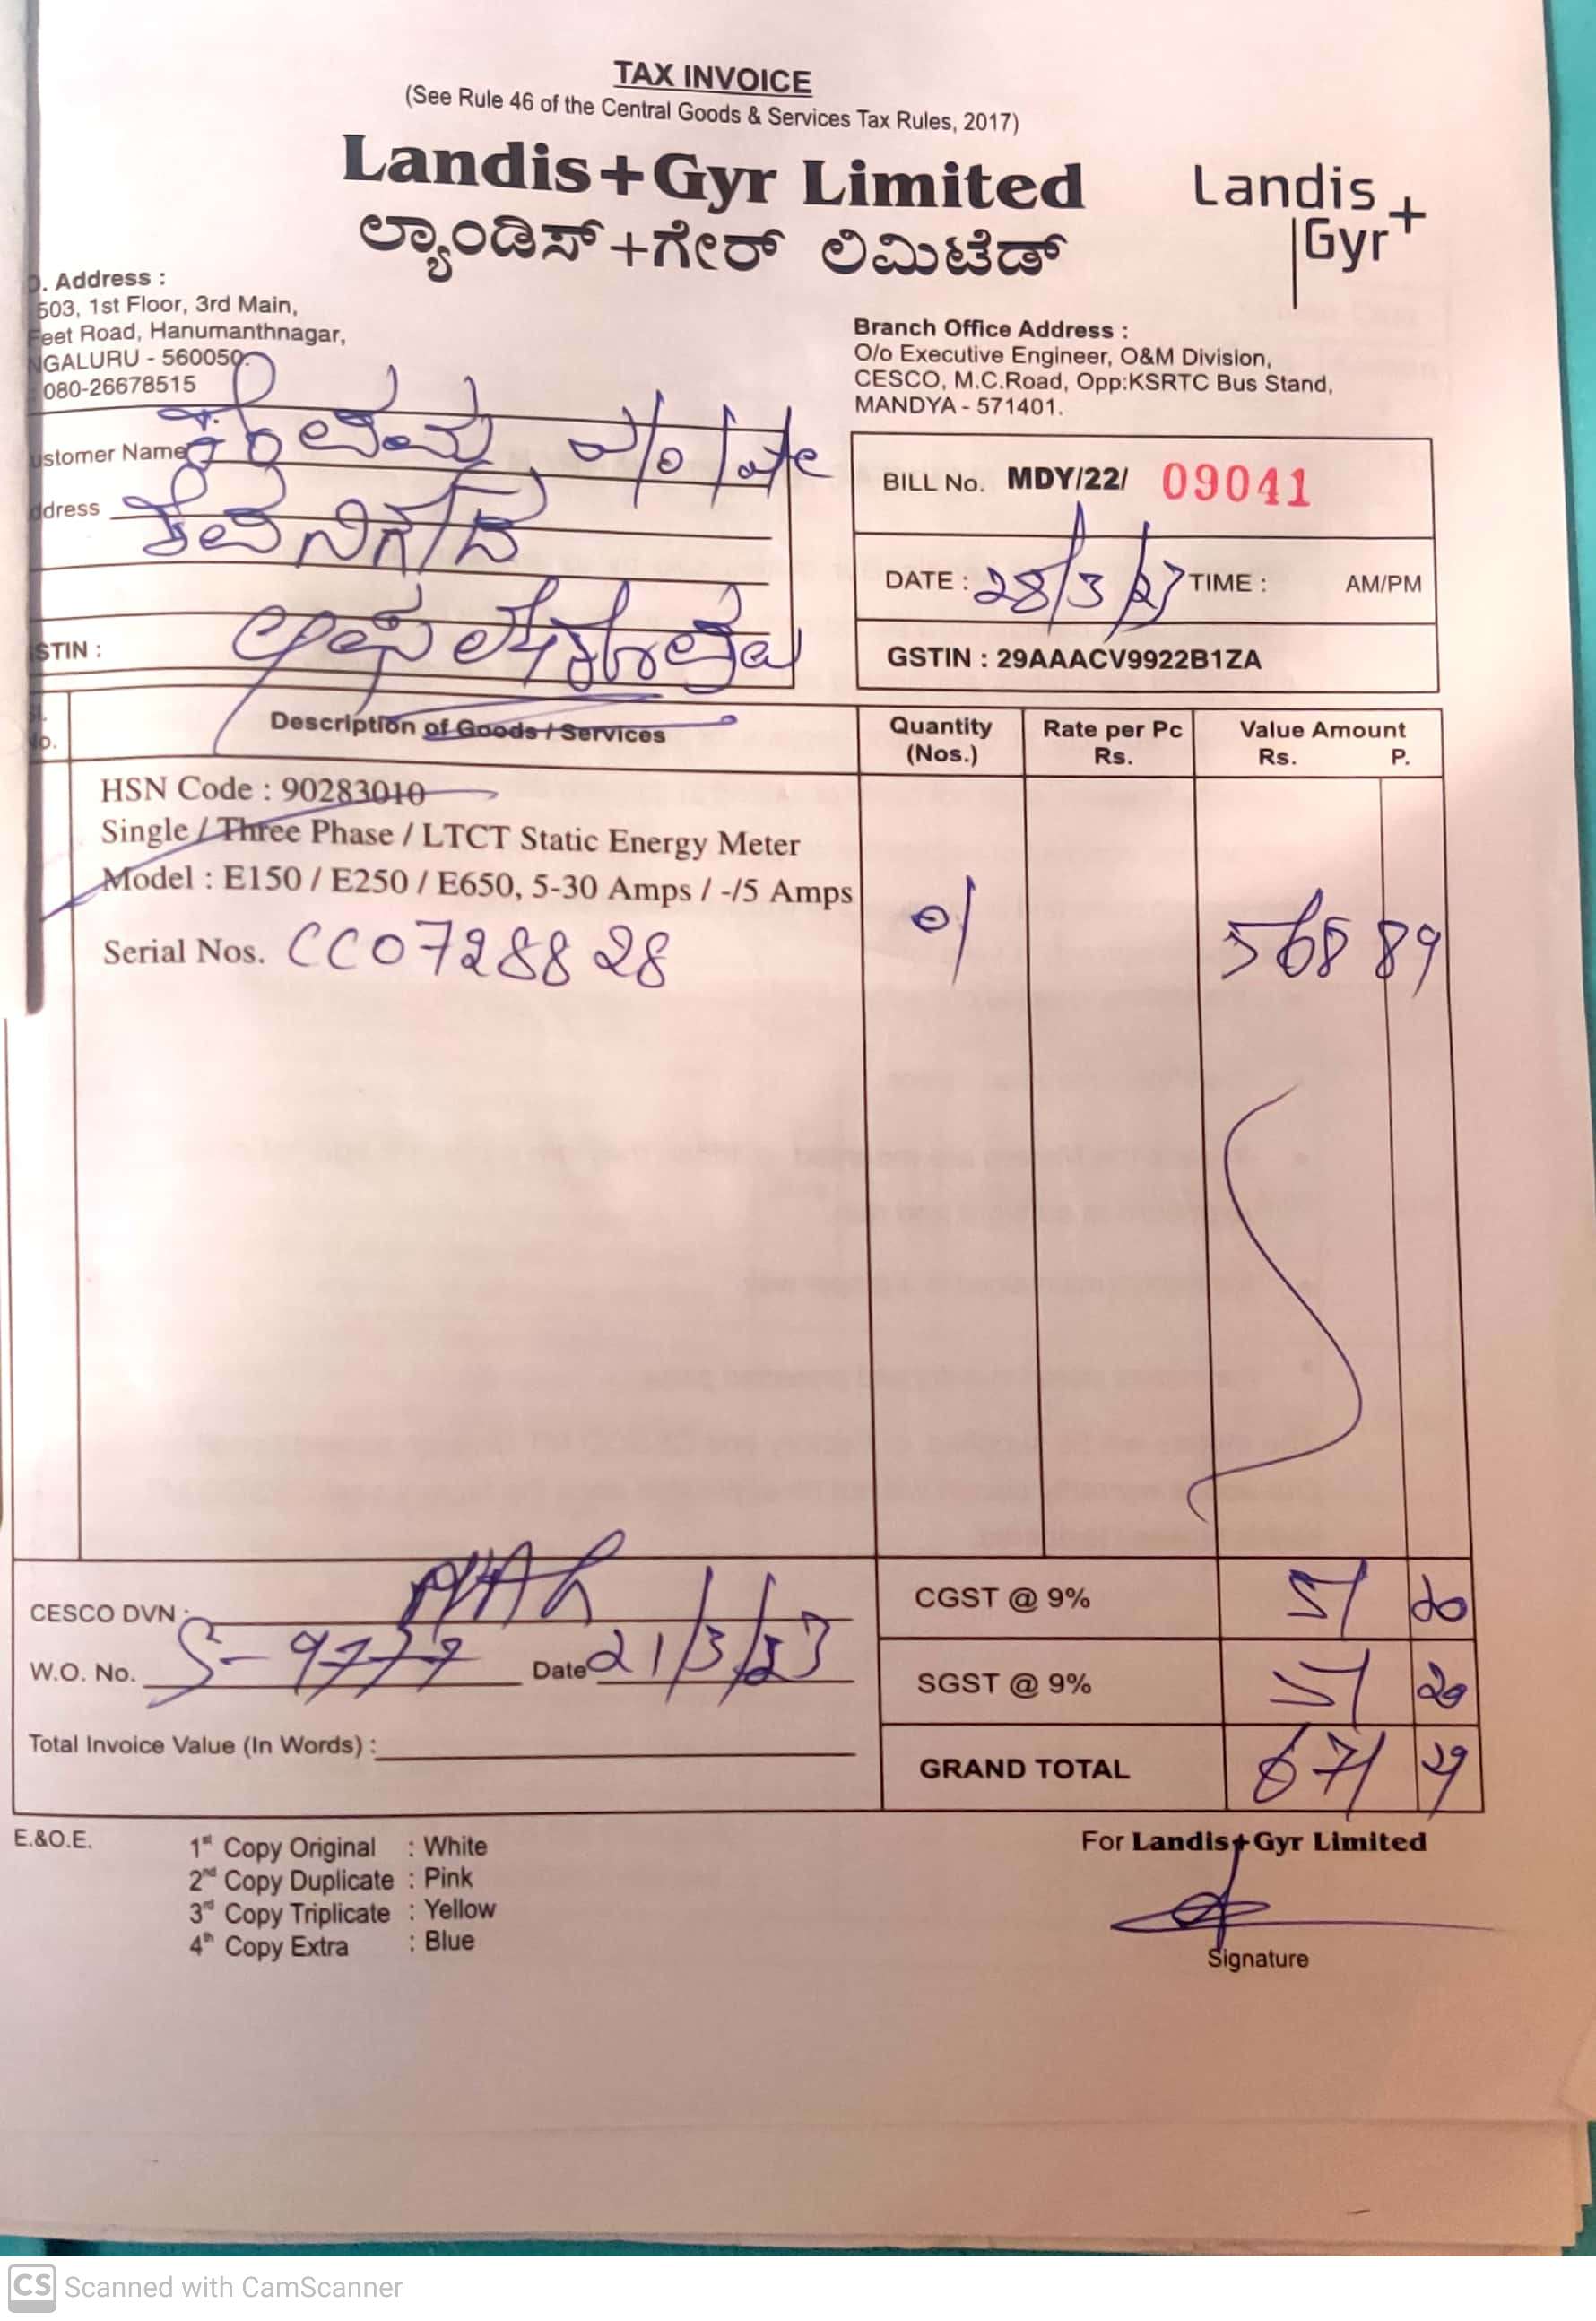 TAX INVOICE
(See Rule 46 of the Central Goods & Services Tax Rules, 2017)
Landis+Gyr Limited
ಲ್ಯಾಂಡಿಸ್+ಗೇರ್ ಲಿಮಿಟೆಡ್
Landis
Gyr+
. Address :
503, 1st Floor, 3rd Main,
Feet Road, Hanumanthnagar,
NGALURU - 560050.
080-26678515
Branch Office Address :
O/o Executive Engineer, O&M Division,
CESCO, M.C.Road, Opp:KSRTC Bus Stand,
MANDYA - 571401.
ustomer Name
ddress
STIN :
BILL No. MDY/22/ 09041
DATE : 28/3/23 TIME : AM/PM
GSTIN : 29AAACV9922B1ZA
Sl. No. Description of Goods / Services Quantity (Nos.) Rate per Pc Rs. Value Amount Rs. P.
HSN Code : 90283010
Single / Three Phase / LTCT Static Energy Meter
Model : E150 / E250 / E650, 5-30 Amps / -/5 Amps
Serial Nos. CC0728828 01 568 89
CESCO DVN :
CGST @ 9% 51 20
W.O. No. S-9777 Date 21/3/23
SGST @ 9% 51 20
Total Invoice Value (In Words) :
GRAND TOTAL 671 29
E.&O.E.
1st Copy Original : White
2nd Copy Duplicate : Pink
3rd Copy Triplicate : Yellow
4th Copy Extra : Blue
For Landis+Gyr Limited
Signature
CS Scanned with CamScanner